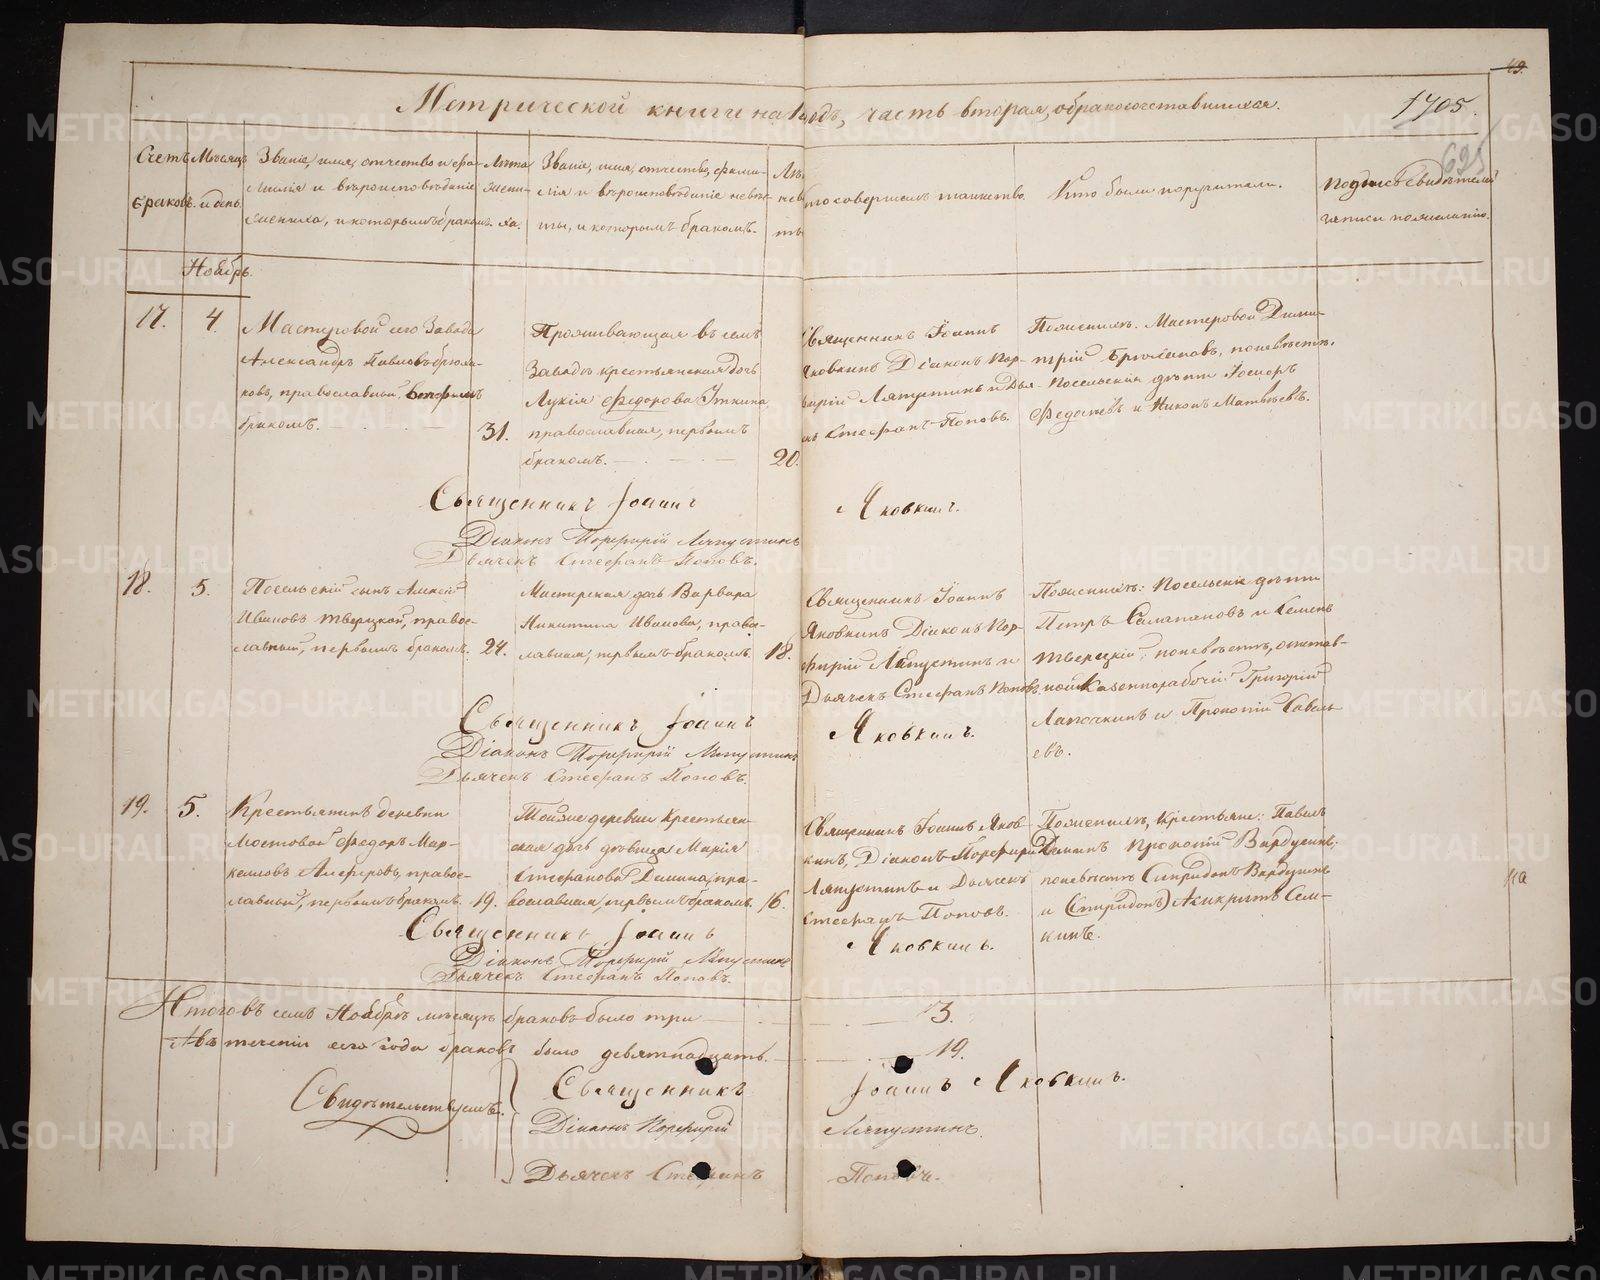 49.
Метрической книги на 18 одъ, часть вторая, о бракосочетавшихся.
1705.
695
Счетъ браковъ.
Мѣсяцъ и день.
Званіе, имя, отчество и фа-
милія и вѣроисповѣданіе
жениха, и которымъ бракомъ.
Лѣта
жени-
ха.
Званіе, имя, отчество, фами-
лія и вѣроисповѣданіе невѣс-
ты, и которымъ бракомъ.
Лѣ
нев
ты
то совершалъ таинство.
Кто были поручители.
Подпись свидѣтелей
записи по желанію.
Ноябрь.
17.
4.
Мастеровой сего Завода
Александръ Павловъ Брюха-
новъ, православный, вторымъ
бракомъ.
31.
Проживающая въ семъ
Заводѣ крестьянская дочь
Лукія Федорова Уткина,
православная, первымъ
бракомъ.
20.
Священникъ Іоаннъ
Яковкинъ Діаконъ Пор-
фирій Ляпустинъ и Дья-
къ Стефанъ Поповъ.
По женихѣ: Мастеровой Дими-
трій Брюхановъ, по невѣстѣ:
Посельскія дѣти Іосифъ
Федотѣвъ и Никонъ Матвѣевъ.
Священникъ Іоаннъ Яковкинъ.
Діаконъ Порфирій Ляпустинъ
Дьячекъ Стефанъ Поповъ.
18.
5.
Посельскій сынъ Алексій
Ивановъ Тверецкой, право-
славный, первымъ бракомъ.
24.
Мастерская дочь Варвара
Никитина Иванова, право-
славная, первымъ бракомъ.
18.
Священникъ Іоаннъ
Яковкинъ Діаконъ Пор-
фирій Ляпустинъ и
Дьячекъ Стефанъ Поповъ.
По женихѣ: Посельскіе дѣти
Петръ Салапановъ и Семенъ
Тверецкій, по невѣстѣ, отстав-
ной Казеннорабочій Григорій
Лапочкинъ и Прокопій Савель-
евъ.
Священникъ Іоаннъ Яковкинъ.
Діаконъ Порфирій Ляпустинъ
Дьячекъ Стефанъ Поповъ.
19.
5.
Крестьянинъ деревни
Мостовой Федоръ Мар-
келловъ Алферовъ, право-
славный, первымъ бракомъ.
19.
Тойже деревни Крестьян-
ская дочь дѣвица Марія
Стефанова Демина, пра-
вославная, первымъ бракомъ.
16.
Священникъ Іоаннъ Яков-
кинъ, Діаконъ Порфирій
Ляпустинъ и Дьячекъ
Стефанъ Поповъ.
По женихѣ, Крестьяне: Павелъ
Деминъ Прокопій Вардугинъ;
по невѣстѣ Спиридонъ Вардугинъ
и (Спиридонъ) Асикритъ Сем-
кинъ.
Священникъ Іоаннъ Яковкинъ.
Діаконъ Порфирій Ляпустинъ
Дьячекъ Стефанъ Поповъ.
Итого въ семъ Ноябрѣ мѣсяцѣ браковъ было три 3.
А въ теченіи сего года браковъ было девятнадцать. 19.
Свидѣтельствуемъ:
Священникъ Іоаннъ Яковкинъ.
Діаконъ Порфирій Ляпустинъ.
Дьячекъ Стефанъ Поповъ.
METRIKI.GASO-URAL.RU